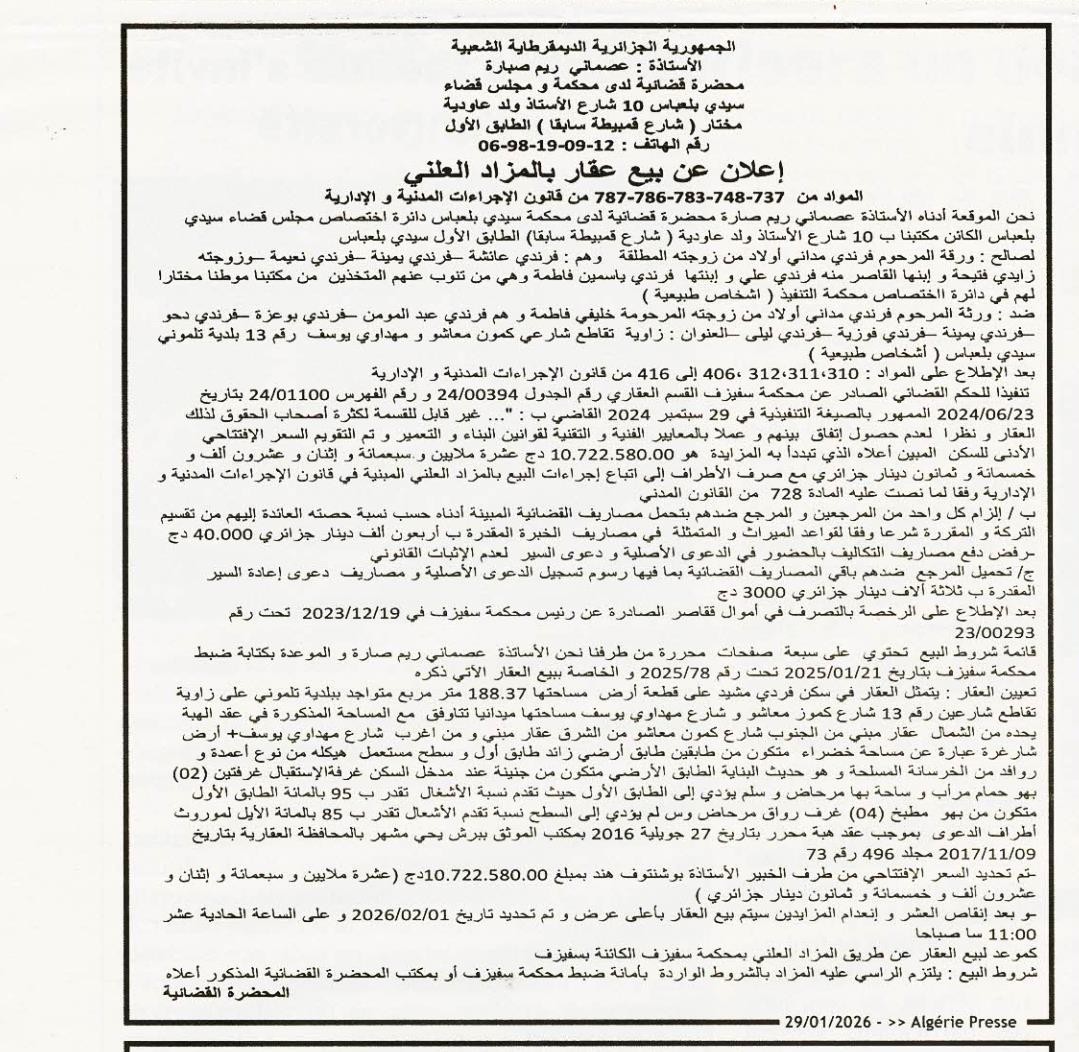 الجمهورية الجزائرية الديمقرطاية الشعبية
الأستاذة : عصماني ريم صبارة
محضرة قضائية لدى محكمة و مجلس قضاء
سيدي بلعباس 10 شارع الأستاذ ولد عاودية
مختار ( شارع قمبيطة سابقا ) الطابق الأول
رقم الهاتف : 12-09-19-98-06
إعلان عن بيع عقار بالمزاد العلني
المواد من 737-748-783-786-787 من قانون الإجراءات المدنية و الإدارية
نحن الموقعة أدناه الأستاذة عصماني ريم صارة محضرة قضائية لدى محكمة سيدي بلعباس دائرة اختصاص مجلس قضاء سيدي
بلعباس الكائن مكتبنا ب 10 شارع الأستاذ ولد عاودية ( شارع قمبيطة سابقا) الطابق الأول سيدي بلعباس
لصالح : ورقة المرحوم فرندي مداني أولاد من زوجته المطلقة وهم : فرندي عائشة –فرندي يمينة –فرندي نعيمة –وزوجته
زايدي فتيحة و إبنها القاصر منه فرندي علي و إبنتها فرندي ياسمين فاطمة وهي من تنوب عنهم المتخذين من مكتبنا موطنا مختارا
لهم في دائرة ااختصاص محكمة التنفيذ ( اشخاص طبيعية )
ضد : ورثة المرحوم فرندي مداني أولاد من زوجته المرحومة خليفي فاطمة و هم فرندي عبد المومن –فرندي بوعزة –فرندي دحو
–فرندي يمينة –فرندي فوزية –فرندي ليلى –العنوان : زاوية تقاطع شارعي كمون معاشو و مهداوي يوسف رقم 13 بلدية تلموني
سيدي بلعباس ( أشخاص طبيعية )
بعد الإطلاع على المواد : 310،311،312 ،406 إلى 416 من قانون الإجراءات المدنية و الإدارية
تنفيذا للحكم القضائي الصادر عن محكمة سفيزف القسم العقاري رقم الجدول 24/00394 و رقم الفهرس 24/01100 بتاريخ
2024/06/23 الممهور بالصيغة التنفيذية في 29 سبتمبر 2024 القاضي ب : "... غير قابل للقسمة لكثرة أصحاب الحقوق لذلك
العقار و نظرا لعدم حصول إتفاق بينهم و عملا بالمعايير الفنية و التقنية لقوانين البناء و التعمير و تم التقويم السعر الإفتتاحي
الأدنى للسكن المبين أعلاه الذي تبتدأ به المزايدة هو 10.722.580.00 دج عشرة ملايين و سبعمائة و إثنان و عشرون ألف و
خمسمائة و ثمانون دينار جزائري مع صرف الأطراف إلى اتباع إجراءات البيع بالمزاد العلني المبنية في قانون الإجراءات المدنية و
الإدارية وفقا لما نصت عليه المادة 728 من القانون المدني
ب / إلزام كل واحد من المرجعين و المرجع ضدهم بتحمل مصاريف القضائية المبينة أدناه حسب نسبة حصته العائدة إليهم من تقسيم
التركة و المقررة شرعا وفقا لقواعد الميراث و المتمثلة في مصاريف الخبرة المقدرة ب أربعون ألف دينار جزائري 40.000 دج
-رفض دفع مصاريف التكاليف بالحضور في الدعوى الأصلية و دعوى السير لعدم الإثبات القانوني
ج/ تحميل المرجع ضدهم باقي المصاريف القضائية بما فيها رسوم تسجيل الدعوى الأصلية و مصاريف دعوى إعادة السير
المقدرة ب ثلاثة آلاف دينار جزائري 3000 دج
بعد الإطلاع على الرخصة بالتصرف في أموال ققاصر الصادرة عن رئيس محكمة سفيزف في 2023/12/19 تحت رقم
23/00293
قائمة شروط البيع تحتوي على سبعة صفحات محررة من طرفنا نحن الأساتذة عصماني ريم صارة و الموعدة بكتابة ضبط
محكمة سفيزف بتاريخ 2025/01/21 تحت رقم 2025/78 و الخاصة ببيع العقار الأتي ذكره
تعيين العقار : يتمثل العقار في سكن فردي مشيد على قطعة أرض مساحتها 188.37 متر مربع متواجد ببلدية تلموني على زاوية
تقاطع شارعين رقم 13 شارع كموز معاشو و شارع مهداوي يوسف مساحتها ميدانيا تتاوفق مع المساحة المذكورة في عقد الهبة
يحده من الشمال عقار مبني من الجنوب شارع كمون معاشو من الشرق عقار مبني و من اغرب شارع مهداوي يوسف+ أرض
شارغرة عبارة عن مساحة خضراء متكون من طابقين طابق أرضي زائد طابق أول و سطح مستعمل هيكله من نوع أعمدة و
روافد من الخرسانة المسلحة و هو حديث البناية الطابق الأرضي متكون من جنينة عند مدخل السكن غرفةالإستقبال غرفتين (02)
بهو حمام مرأب و ساحة بها مرحاض و سلم يؤدي إلى الطابق الأول حيث تقدم نسبة الأشغال تقدر ب 95 بالمائة الطابق الأول
متكون من بهو مطبخ (04) غرف رواق مرحاض وس لم يؤدي إلى السطح نسبة تقدم الأشعال تقدر ب 85 بالمائة الأيل لموروث
أطراف الدعوى بموجب عقد هبة محرر بتاريخ 27 جويلية 2016 بمكتب الموثق ببرش يحي مشهر بالمحافظة العقارية بتاريخ
2017/11/09 مجلد 496 رقم 73
-تم تحديد السعر الإفتتاحي من طرف الخبير الأستاذة بوشنتوف هند بمبلغ 10.722.580.00دج (عشرة ملايين و سبعمائة و إثنان و
عشرون ألف و خمسمائة و ثمانون دينار جزائري )
-و بعد إنقاص العشر و إنعدام المزايدين سيتم بيع العقار بأعلى عرض و تم تحديد تاريخ 2026/02/01 و على الساعة الحادية عشر
11:00 سا صباحا
كموعد لبيع العقار عن طريق المزاد العلني بمحكمة سفيزف الكائنة بسفيزف
شروط البيع : يلتزم الراسي عليه المزاد بالشروط الواردة بأمانة ضبط محكمة سفيزف أو بمكتب المحضرة القضائية المذكور أعلاه
المحضرة القضائية
29/01/2026 - >> Algérie Presse